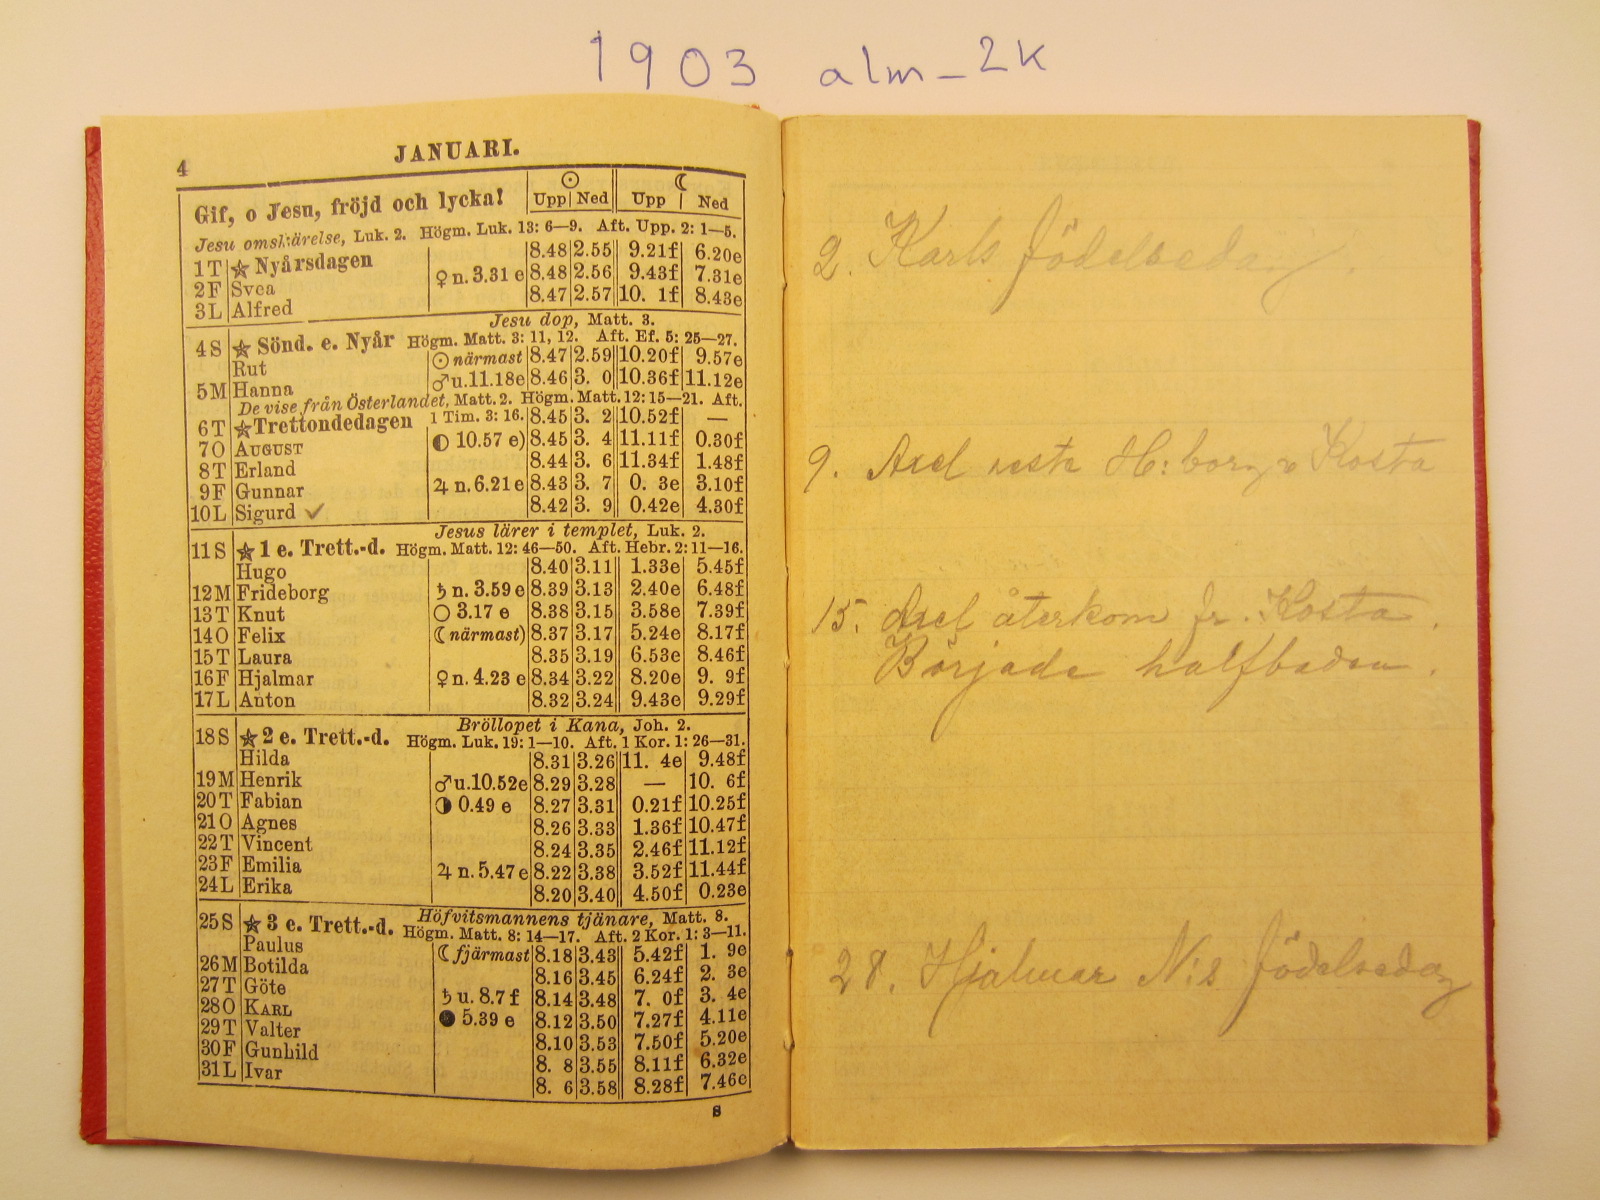 1903 alm_2k
4
JANUARI.
Gif, o Jesu, fröjd och lycka!
☉ ☾
Upp Ned Upp Ned
Jesu omskärelse, Luk. 2. Högm. Luk. 13: 6—9. Aft. Upp. 2: 1—5.
1 T ★ Nyårsdagen 8.48 2.55 9.21f 6.20e
2 F Svea ♀ n. 3.31 e 8.48 2.56 9.43f 7.31e
3 L Alfred 8.47 2.57 10. 1f 8.43e
Jesu dop, Matt. 3.
4 S ★ Sönd. e. Nyår Högm. Matt. 3: 11, 12. Aft. Ef. 5: 25—27.
Rut ☉ närmast 8.47 2.59 10.20f 9.57e
5 M Hanna ♂ u. 11.18e 8.46 3. 0 10.36f 11.12e
De vise från Österlandet, Matt. 2. Högm. Matt. 12: 15—21. Aft.
6 T ★ Trettondedagen 1 Tim. 3: 16. 8.45 3. 2 10.52f —
7 O AUGUST ◐ 10.57 e) 8.45 3. 4 11.11f 0.30f
8 T Erland 8.44 3. 6 11.34f 1.48f
9 F Gunnar ♃ n. 6.21 e 8.43 3. 7 0. 3e 3.10f
10 L Sigurd ✓ 8.42 3. 9 0.42e 4.30f
Jesus lärer i templet, Luk. 2.
11 S ★ 1 e. Trett.-d. Högm. Matt. 12: 46—50. Aft. Hebr. 2: 11—16.
Hugo 8.40 3.11 1.33e 5.45f
12 M Frideborg ♄ n. 3.59 e 8.39 3.13 2.40e 6.48f
13 T Knut ○ 3.17 e 8.38 3.15 3.58e 7.39f
14 O Felix ☾ närmast) 8.37 3.17 5.24e 8.17f
15 T Laura 8.35 3.19 6.53e 8.46f
16 F Hjalmar ♀ n. 4.23 e 8.34 3.22 8.20e 9. 9f
17 L Anton 8.32 3.24 9.43e 9.29f
Bröllopet i Kana, Joh. 2.
18 S ★ 2 e. Trett.-d. Högm. Luk. 19: 1—10. Aft. 1 Kor. 1: 26—31.
Hilda 8.31 3.26 11. 4e 9.48f
19 M Henrik ♂ u. 10.52e 8.29 3.28 — 10. 6f
20 T Fabian ◑ 0.49 e 8.27 3.31 0.21f 10.25f
21 O Agnes 8.26 3.33 1.36f 10.47f
22 T Vincent 8.24 3.35 2.46f 11.12f
23 F Emilia ♃ n. 5.47 e 8.22 3.38 3.52f 11.44f
24 L Erika 8.20 3.40 4.50f 0.23e
Höfvitsmannens tjänare, Matt. 8.
25 S ★ 3 e. Trett.-d. Högm. Matt. 8: 14—17. Aft. 2 Kor. 1: 3—11.
Paulus ☾ fjärmast 8.18 3.43 5.42f 1. 9e
26 M Botilda 8.16 3.45 6.24f 2. 3e
27 T Göte ♄ u. 8.7 f 8.14 3.48 7. 0f 3. 4e
28 O KARL ● 5.39 e 8.12 3.50 7.27f 4.11e
29 T Valter 8.10 3.53 7.50f 5.20e
30 F Gunhild 8. 8 3.55 8.11f 6.32e
31 L Ivar 8. 6 3.58 8.28f 7.46e
S
2. Karls födelsedag.
9. Axel reste H:borg o Kosta
15. Axel återkom fr. Kosta.
Började halfbaden.
28. Hjalmar N:s födelsedag